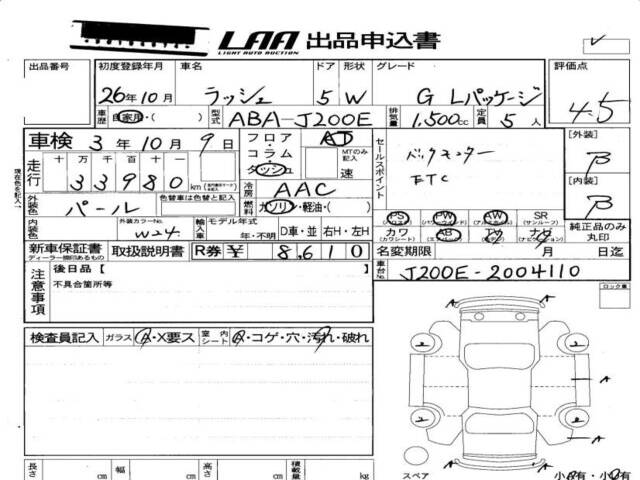 LAA 出品申込書
LIGHT AUTO AUCTION
出品番号 初度登録年月 車名 ドア 形状 グレード 評価点
26年10月 ラッシュ 5 W G Lパッケージ 4.5
車歴 自家用・( ) 型式 ABA-J200E 排気量 1,500cc 定員 5人
車検 3年10月9日 フロア・コラム ダッシュ AT MTのみ記入 速
セールスポイント バックモニター ETC
[外装] B
[内装] B
現在色を記入
走行 十 万 千 百 十 一
33980 km
冷房 AAC
外装色 パール 色替車は色替と記入
燃料 ガソリン・軽油・( )
内装色 外装カラーNo. W24 輸入車 モデル年式 年・不明 D車・並 右H・左H
PS PW AW SR 純正品のみ丸印
(パワステ) (パワーウィンド) (アルミホイール) (サンルーフ)
カワ AB TV ナビ
(カワシート) (エアバッグ) (テレビ) (ナビゲーション)
新車保証書 取扱説明書 R券 ¥ 8,610 名変期限 月 日迄
ディーラー捺印あるもの
車台No. J200E-2004110
注意事項 後日品[ ]
不具合箇所等
ロック車
検査員記入 ガラス A・X要ス 室内シート A・コゲ・穴・汚れ・破れ
A A
A
A
A
長さ cm 幅 cm 高さ cm 積載量 kg
スペア
小A有・小B有